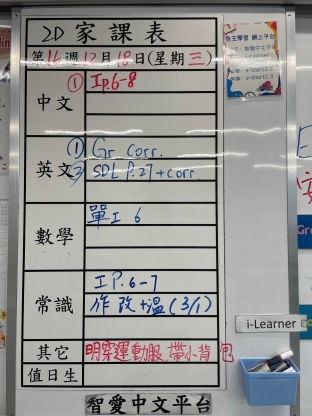 2D 家課表
第16週12月18日(星期三)
中文 ① I p.6-8
英文 ① Gr corr.
② SDL P.27+corr.
數學 單I 6
常識 I P.6-7
作改+溫(3/1)
其它 明穿運動服,帶小背包
值日生
智愛中文平台
i-Learner
自主學習 網上平台
智愛中文平台
i-Learner